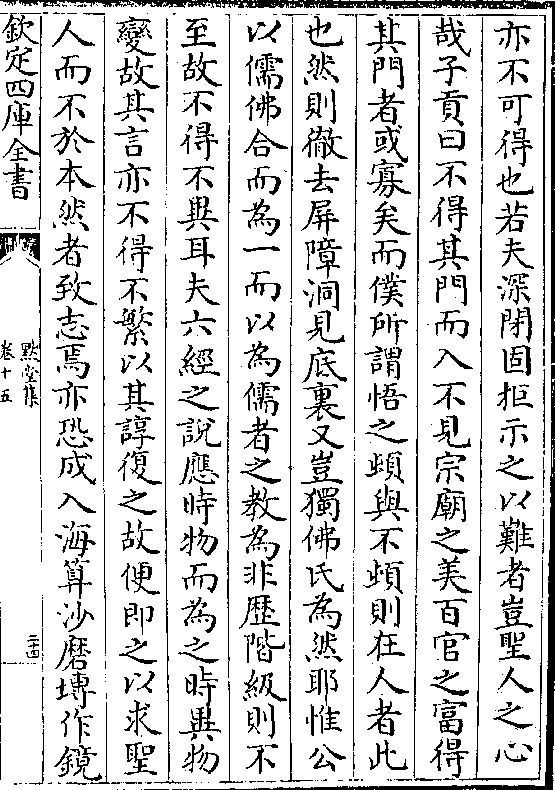 亦不可得也若夫深閉固拒示之以難者豈聖人之心
哉子貢曰不得其門而入不見宗廟之美百官之富得
其門者或寡矣而僕所謂悟之頓與不頓則在人者此
也然則徹去屏障洞見底裏又豈獨佛氏為然耶惟公
以儒佛合而為一而以為儒者之教為非歴階級則不
至故不得不異耳夫六經之說應時物而為之時異物
變故其言亦不得不繁以其諄復之故便即之以求聖
人而不於本然者致志焉亦恐成入海算沙磨塼作鏡
欽定四庫全書
默堂集
卷十五
二十四